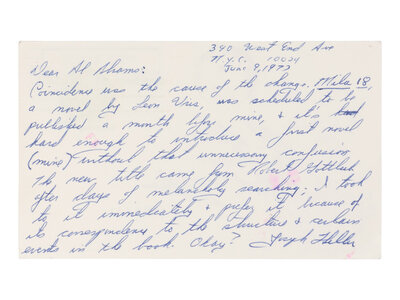 390 West End Ave
N.Y.C. 10024
June 9, 1972
Dear Al Shamo:
Coincidence was the cause of the change. Mila 18,
a novel by Leon Uris, was scheduled to be
published a month before mine, & it's
hard enough to introduce a first novel
(mine) without that unnecessary confusion.
The new title came from Robert Gottlieb
after days of melancholy searching. I took
to it immediately & prefer it because of
its correspondence to the structure & certain
events in the book. Okay? Joseph Heller